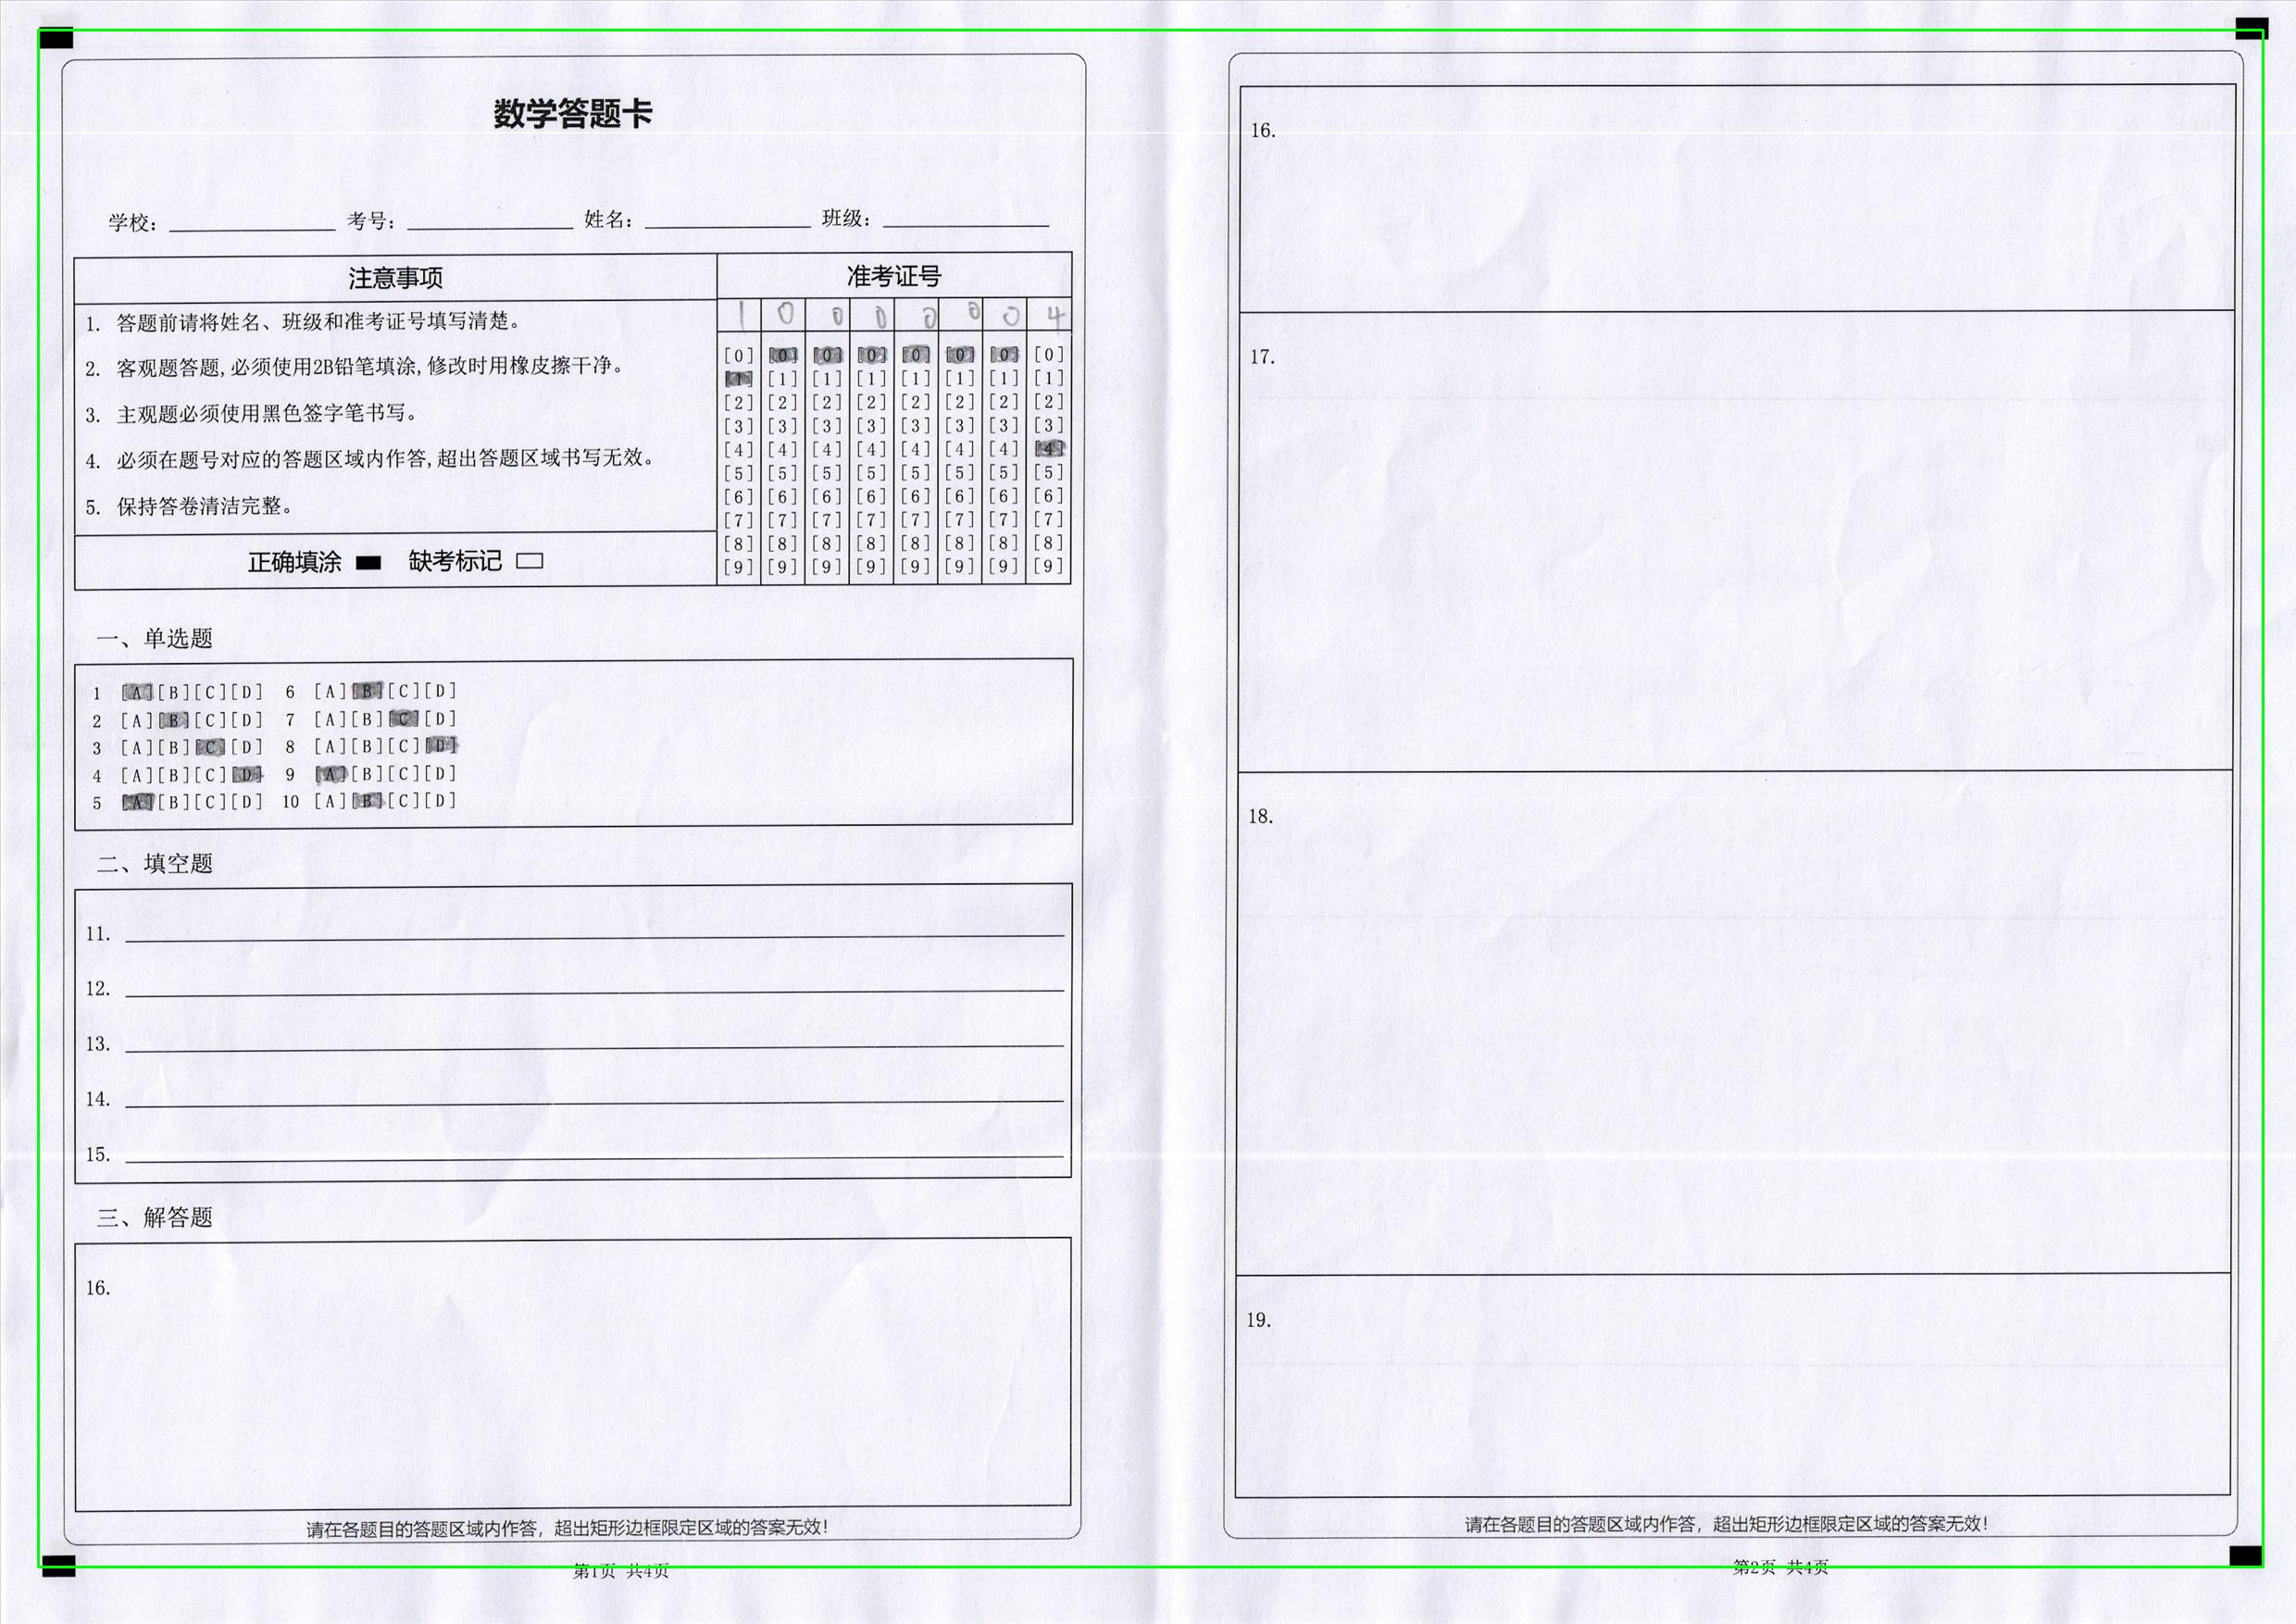 数学答题卡
学校: 考号: 姓名: 班级:
注意事项
1. 答题前请将姓名、班级和准考证号填写清楚。
2. 客观题答题,必须使用2B铅笔填涂,修改时用橡皮擦干净。
3. 主观题必须使用黑色签字笔书写。
4. 必须在题号对应的答题区域内作答,超出答题区域书写无效。
5. 保持答卷清洁完整。
正确填涂 缺考标记
准考证号
1 0 0 0 0 0 0 4
[0] [0] [0] [0] [0] [0] [0] [0]
[1] [1] [1] [1] [1] [1] [1] [1]
[2] [2] [2] [2] [2] [2] [2] [2]
[3] [3] [3] [3] [3] [3] [3] [3]
[4] [4] [4] [4] [4] [4] [4] [4]
[5] [5] [5] [5] [5] [5] [5] [5]
[6] [6] [6] [6] [6] [6] [6] [6]
[7] [7] [7] [7] [7] [7] [7] [7]
[8] [8] [8] [8] [8] [8] [8] [8]
[9] [9] [9] [9] [9] [9] [9] [9]
一、单选题
1 [A][B][C][D] 6 [A][B][C][D]
2 [A][B][C][D] 7 [A][B][C][D]
3 [A][B][C][D] 8 [A][B][C][D]
4 [A][B][C][D] 9 [A][B][C][D]
5 [A][B][C][D] 10 [A][B][C][D]
二、填空题
11.
12.
13.
14.
15.
三、解答题
16.
请在各题目的答题区域内作答，超出矩形边框限定区域的答案无效!
第1页 共4页
16.
17.
18.
19.
请在各题目的答题区域内作答，超出矩形边框限定区域的答案无效!
第2页 共4页